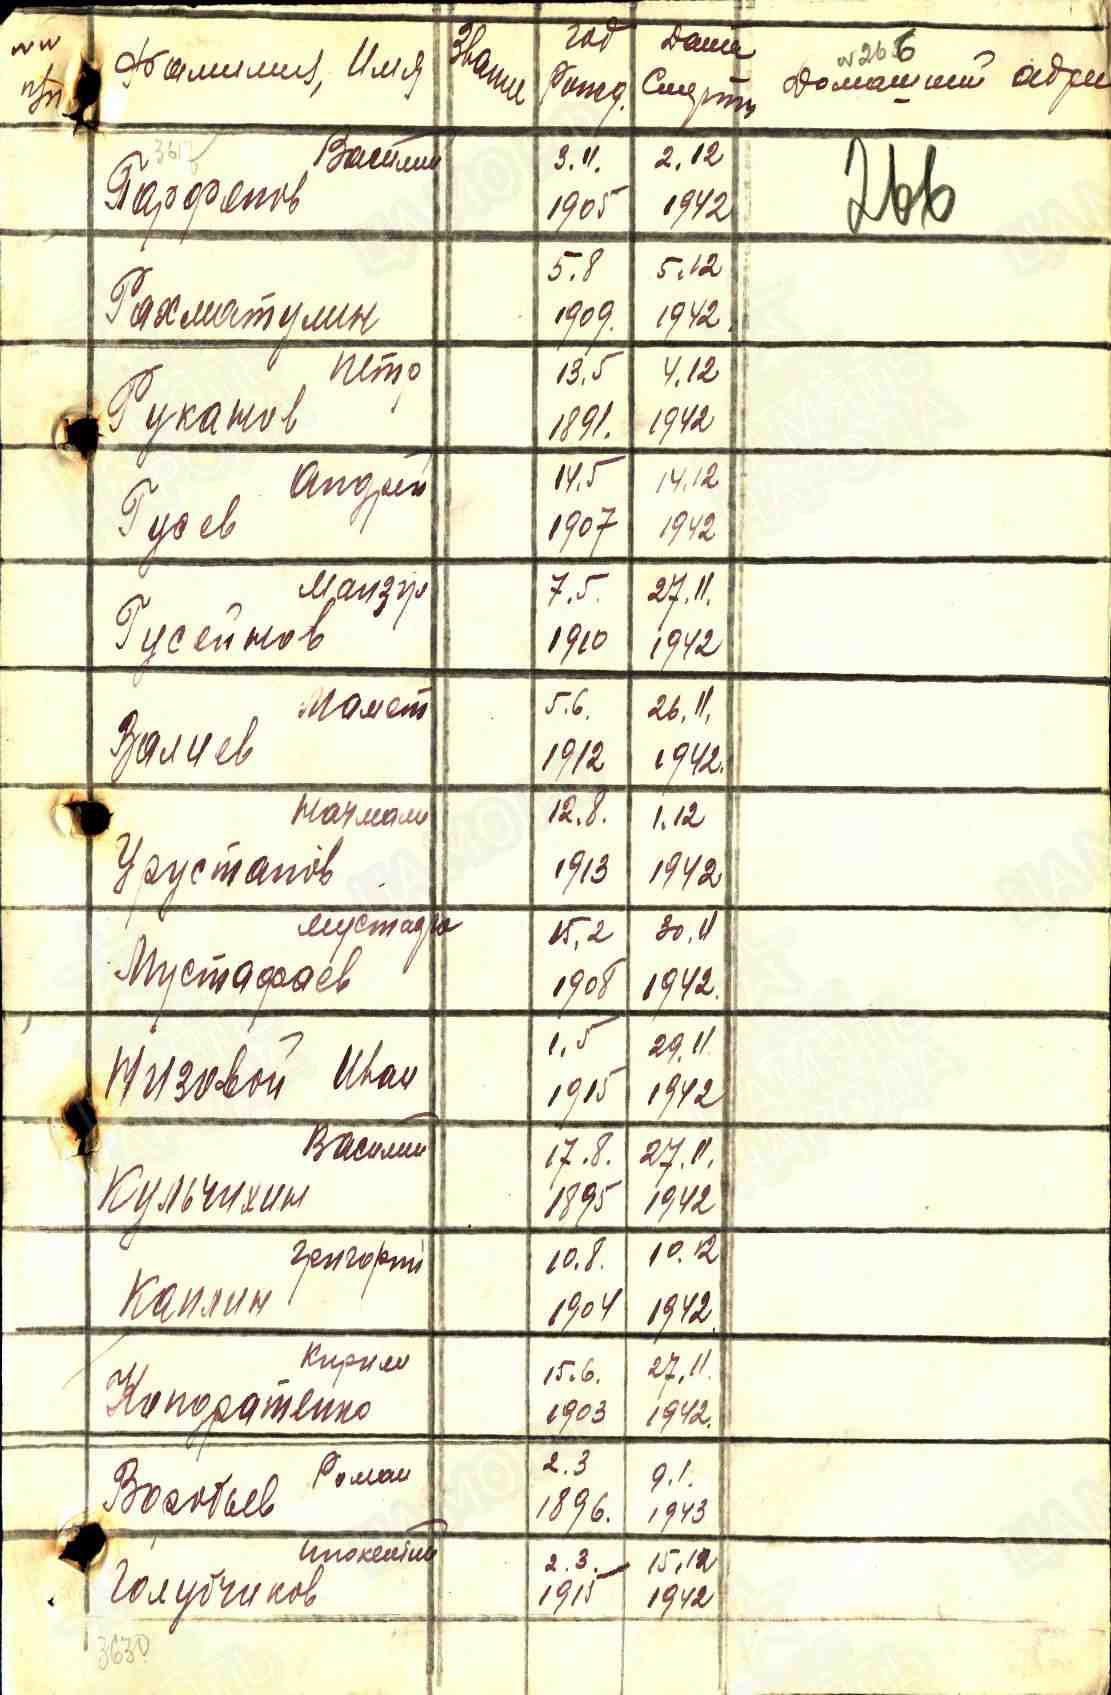 №№ Фамилия, Имя Звание Год Дата №266
п/п Рожд. Смерти Домашний адрес
3617 Василий 3.11. 2.12 266
Парфенов 1905 1942
5.8 5.12
Рахматулин 1909. 1942.
Петр 13.5 4.12
Руканов 1891. 1942
Андрей 14.5 14.12
Гусев 1907 1942
Манзур 7.5. 27.11.
Гусейнов 1910 1942
Мамет 5.6. 26.11.
Валиев 1912 1942.
12.8. 1.12
Урустапов 1913 1942
Мустафа 15.2 30.11
Мустафаев 1908 1942.
1.5 29.11
Низовой Иван 1915 1942
Василий 17.8. 27.11.
Кульчихин 1895 1942
Григорий 10.8. 10.12
Каплин 1904 1942.
Кирило 15.6. 27.11.
Кондратенко 1903 1942.
Роман 2.3 9.1.
Воробьев 1896. 1943
Инокентий 2.3. 15.12
Голубчиков 1915 1942
3630